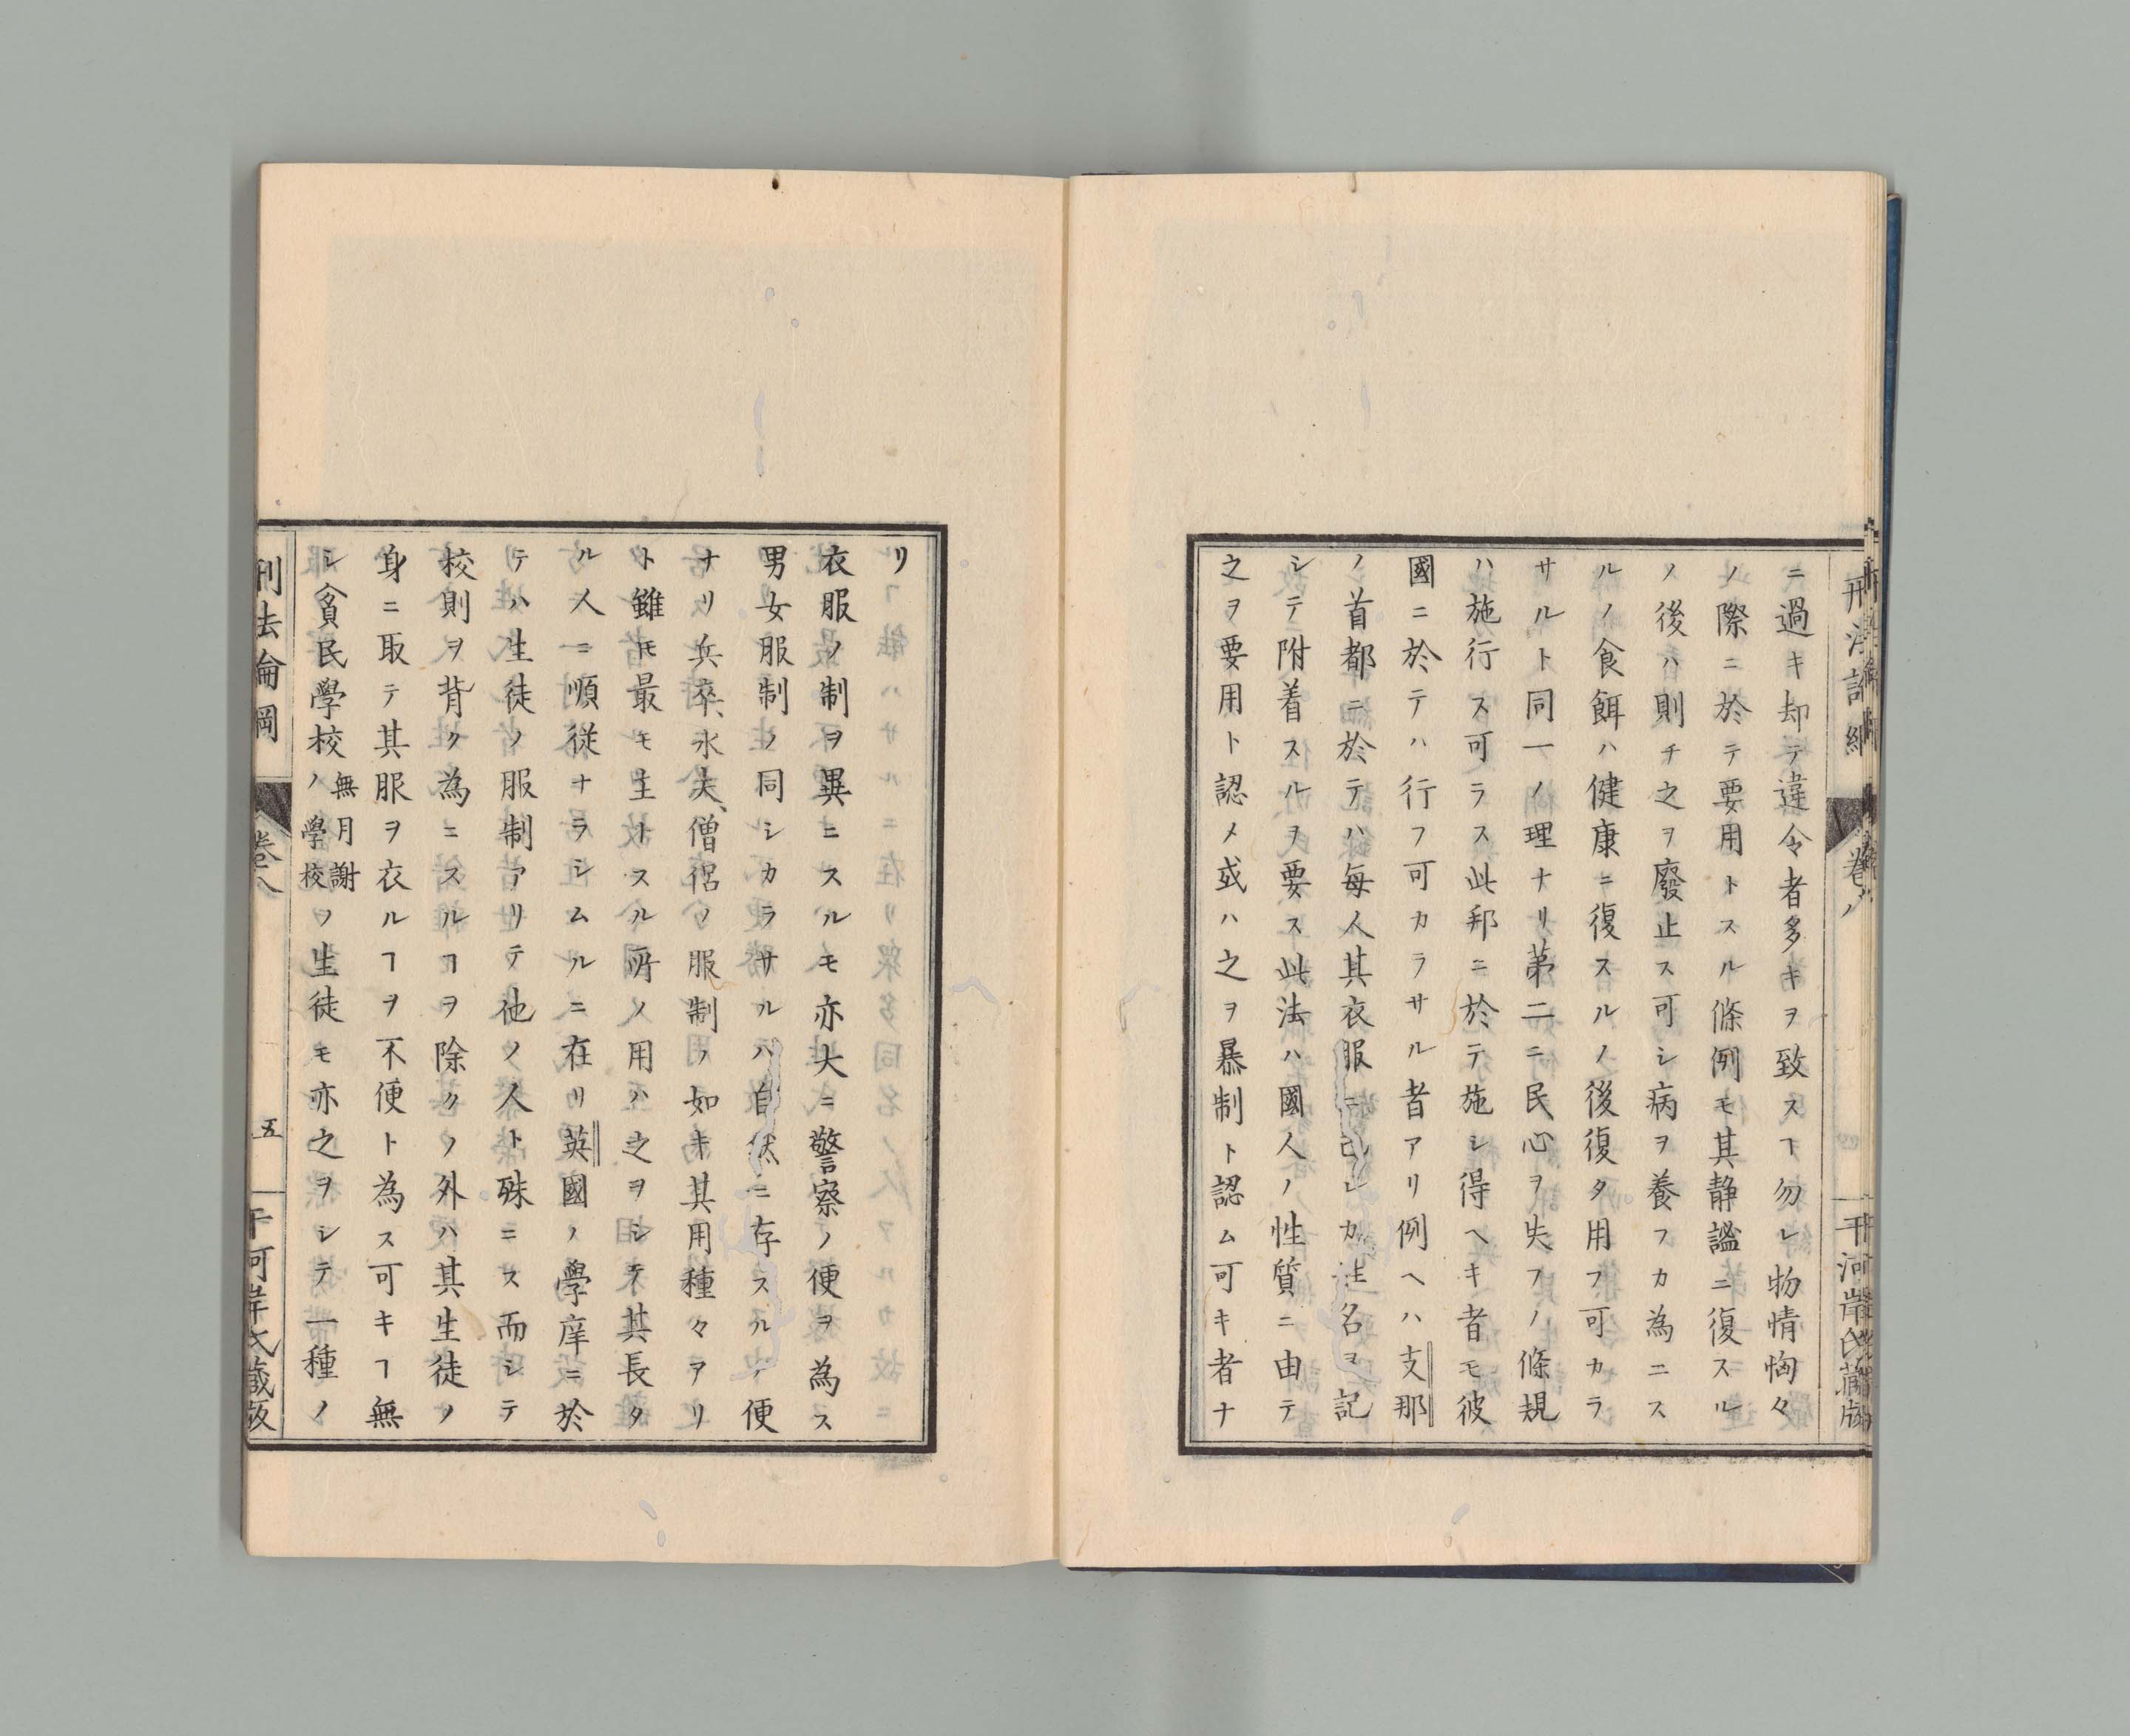 ニ過キ却テ違令者多キヲ致スヿ勿レ物情恟々
ノ際ニ於テ要用トスル條例モ其静謐ニ復スル
ノ後ハ則チ之ヲ廢止ス可シ病ヲ養フカ為ニス
ルノ食餌ハ健康ニ復スルノ後復タ用フ可カラ
サルト同一ノ理ナリ第二ニ民心ヲ失フノ條規
ハ施行ス可ラス此邦ニ於テ施シ得ヘキ者モ彼
國ニ於テハ行フ可カラサル者アリ例ヘハ支那
ノ首都ニ於テハ毎人其衣服ニ己レカ姓名ヲ記
シテ附着スルヲ要ス此法ハ國人ノ性質ニ由テ
之ヲ要用ト認メ或ハ之ヲ暴制ト認ム可キ者ナ
リ
衣服ノ制ヲ異ニスルモ亦大ニ警察ノ便ヲ為ス
男女服制ノ同シカラサルハ自然ニ存スルノ便
ナリ兵卒、水夫、僧侶ノ服制ノ如キ其用種々アリ
ト雖モ最モ主トスル所ノ用ハ之ヲシテ其長タ
ル人ニ順従ナラシムルニ在リ英國ノ學庠ニ於
テハ生徒ノ服制アリテ他ノ人ト殊ニス而シテ
校則ヲ背ク為ニスルヿヲ除クノ外ハ其生徒ノ
身ニ取テ其服ヲ衣ルヿヲ不便ト為ス可キヿ無
シ貧民學校ノ無月謝學校ノ生徒モ亦之ヲシテ一種ノ
刑法論綱
卷八
五
干河岸氏蔵版